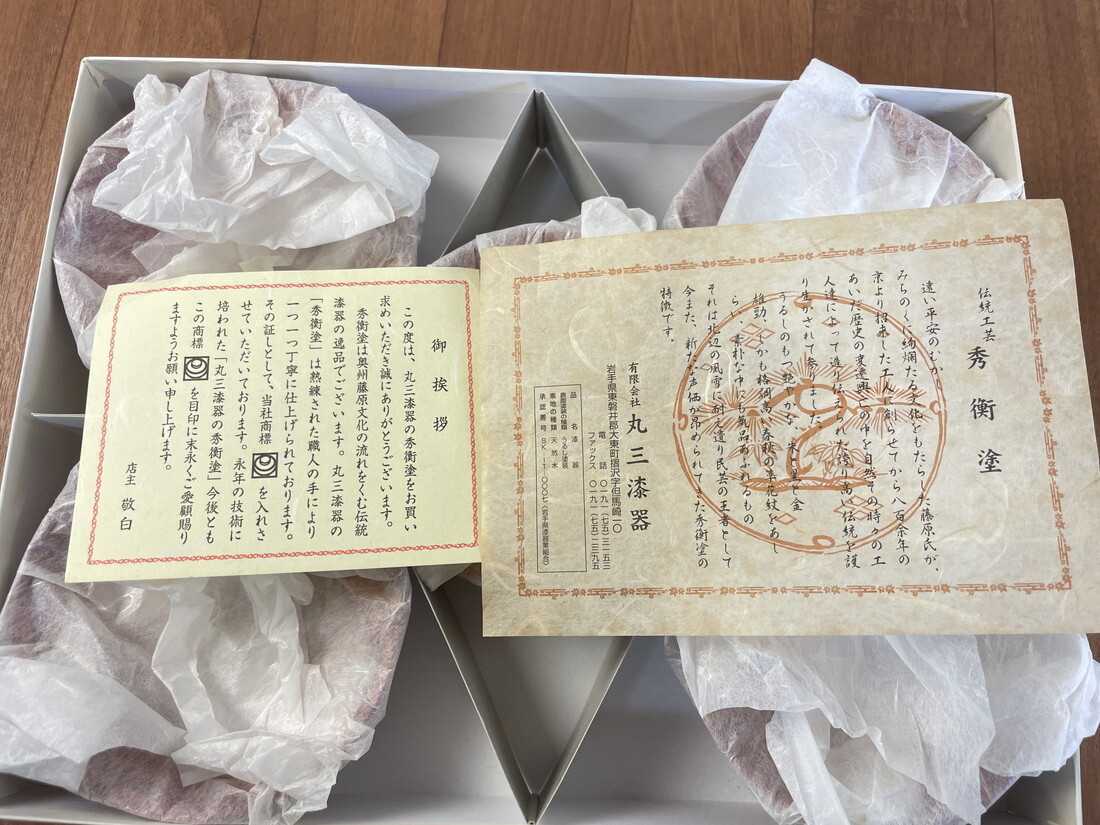 伝統工芸 秀衡塗
遠い平安のむかし
みちのくに絢爛たる文化をもたらした藤原氏が、
京より招来した工人に創らせてから八百余年の
あいだ歴史の変遷興亡の中を自然その時々の工
人達によって造り伝えられた誇り高い伝統を護
り生かされて参りました。
うるしのもつ艶やかな 朱と黒と金
雄勁、しかも格調高い春秋の草花紋をあし
らい、素朴な中にも気品あふれるもの
それは北辺の風雪に耐え遺り民芸の王者として
今また、新たな声価が昂められてきた秀衡塗の
特徴です。
有限会社 丸三漆器
岩手県東磐井郡大東町摺沢字但馬崎一〇
電話 〇一九一(七五)三一五三
ファックス 〇一九一(七五)二三九五
品名 漆器
表面塗装の種類 うるし塗装
素地の種類 天然木
承認番号 SK―IT〇〇〇七〈岩手県漆器業組合〉
御挨拶
この度は、丸三漆器の秀衡塗をお買い
求めいただき誠にありがとうございます。
秀衡塗は奥州藤原文化の流れをくむ伝統
漆器の逸品でございます。丸三漆器の
「秀衡塗」は熟練された職人の手により
一つ一つ丁寧に仕上げられております。
その証しとして、当社商標 を入れさ
せていただいております。永年の技術に
培われた「丸三漆器の秀衡塗」今後とも
この商標 を目印に末永くご愛顧賜り
ますようお願い申し上げます。
店主 敬白